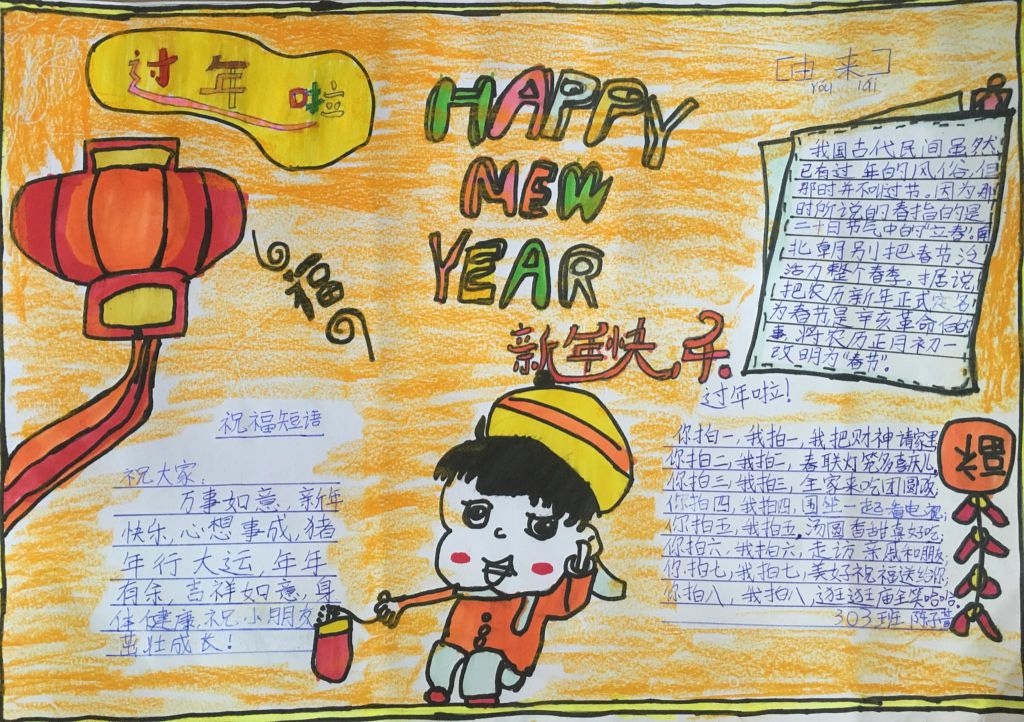 过年啦
HAPPY
MEW
YEAR
新年快乐
福
[由来]
YOU lai
我国古代民间虽然
已有过年的风俗,但
那时并不叫过节。因为那
时所说的春指的是
二十日节气中的"立春",南
北朝别把春节泛
活力整个春季。据说,
把农历新年正式定名
为春节是辛亥革命后的
事。将农历正月初一
改明为"春节"。
祝福短语
祝大家:
万事如意、新年
快乐,心想事成,猪
年行大运,年年
有余,吉祥如意,身
体健康,祝小朋友
茁壮成长!
过年啦!
你拍一,我拍一,我把财神请家里,
你拍二,我拍二,春联灯笼多喜庆儿,
你拍三,我拍三,全家来吃团圆饭,
你拍四,我拍四,围坐一起看电视,
你拍五,我拍五,汤圆香甜真好吃,
你拍六,我拍六,走访亲戚和朋友
你拍七,我拍七,美好祝福送给你,
你拍八,我拍八,逛逛庙会笑哈哈。
303班 陈子萱